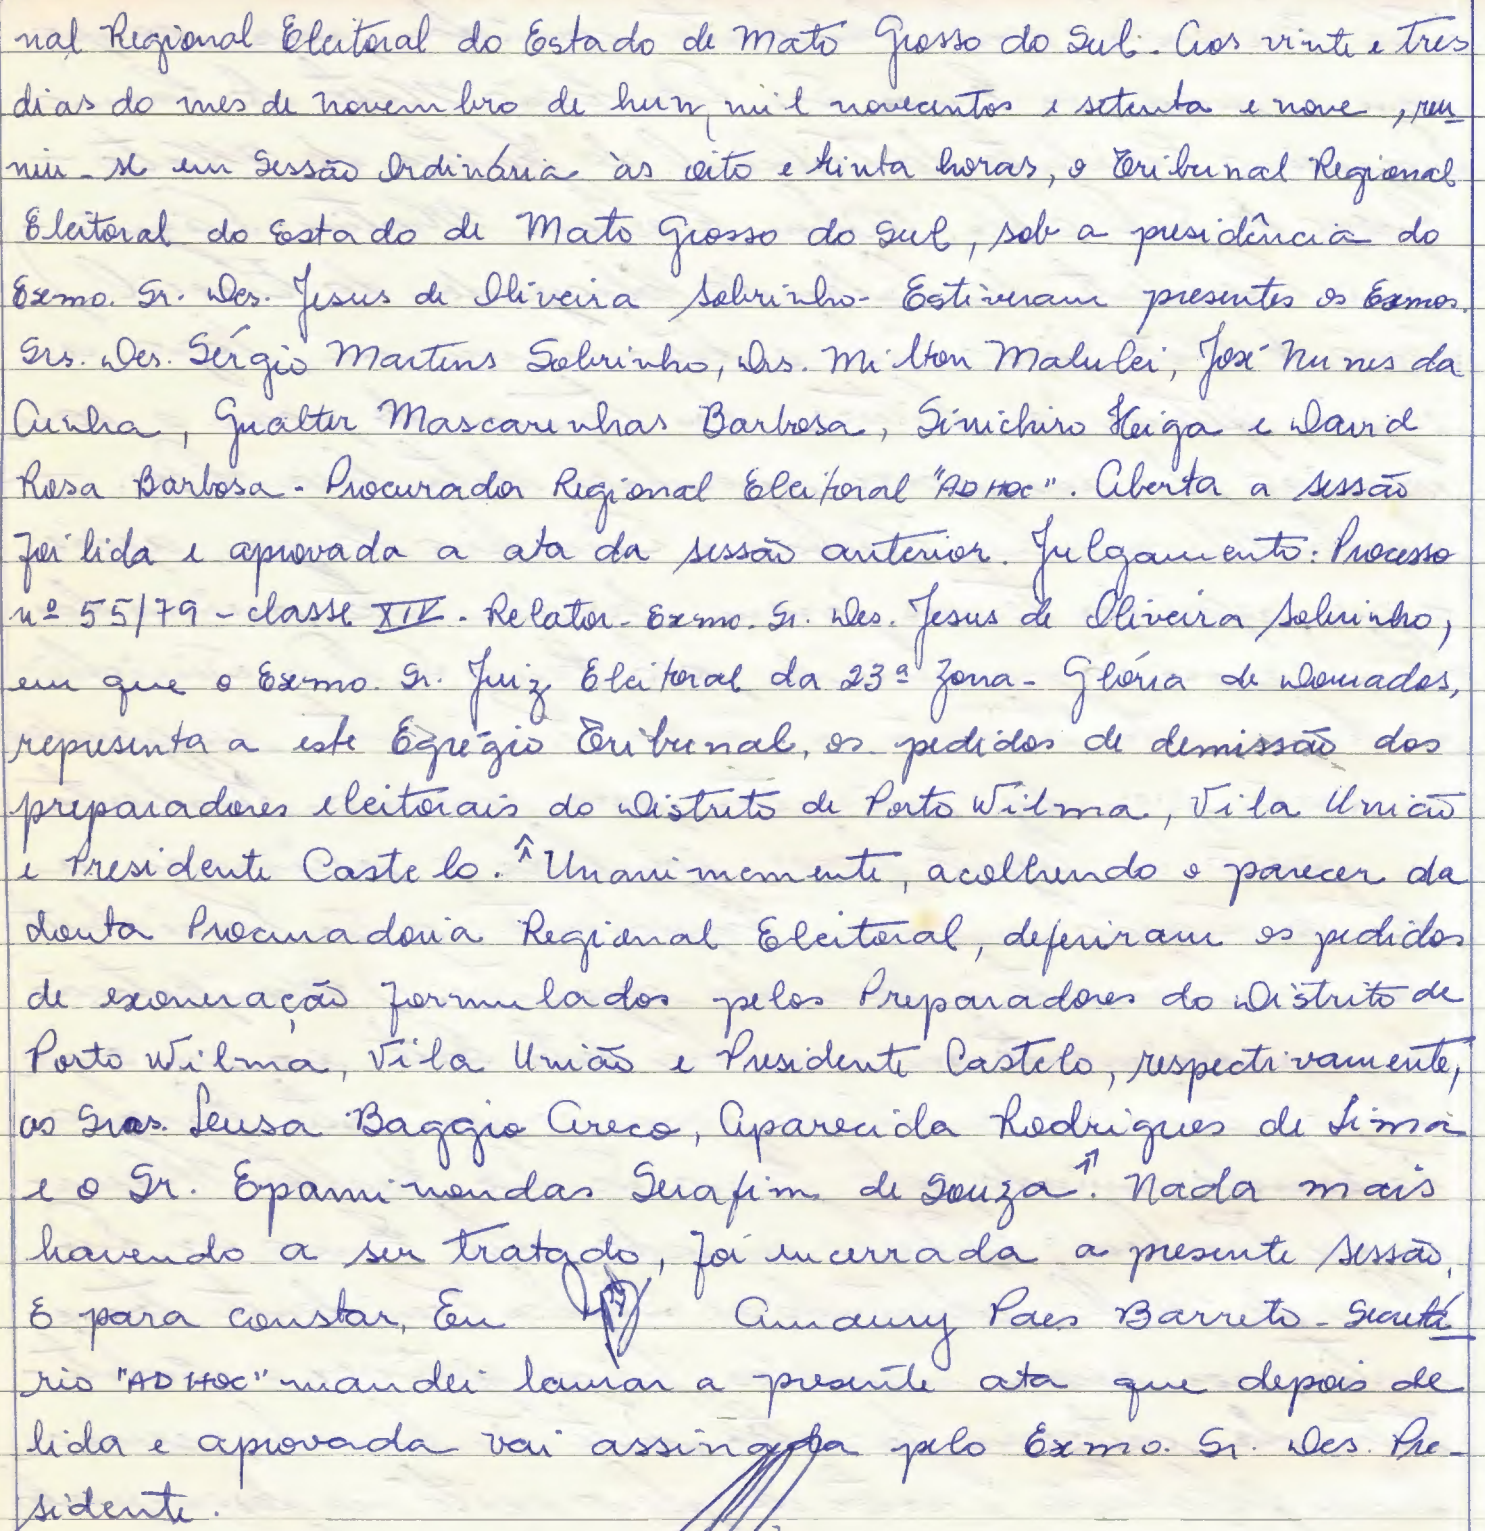 nal Regional Eleitoral do Estado de Mato Grosso do Sul. Aos vinte e tres
dias do mes de novembro de hum mil novecentos e setenta e nove, reu
niu-se em Sessão Ordinária às oito e trinta horas, o Tribunal Regional
Eleitoral do Estado de Mato Grosso do Sul, sob a presidência do
Exmo. Sr. Des. Jesus de Oliveira Sobrinho. Estiveram presentes os Exmos.
Srs. Des. Sérgio Martins Sobrinho, Drs. Milton Malulei, José Nunes da
Cunha, Gualter Mascarenhas Barbosa, Sinichiro Heiga e David
Rosa Barbosa - Procurador Regional Eleitoral "AD HOC". Aberta a sessão
foi lida e aprovada a ata da sessão anterior. Julgamento: Processo
nº 55/79 - classe XIV. Relator - Exmo. Sr. Des. Jesus de Oliveira Sobrinho,
em que o Exmo. Sr. Juiz Eleitoral da 23ª Zona - Glória de Dourados,
representa a este Egrégio Tribunal, os pedidos de demissão dos
preparadores eleitorais do Distrito de Porto Wilma, Vila União
e Presidente Castelo. "Unanimemente, acolhendo o parecer da
douta Procuradoria Regional Eleitoral, deferiram os pedidos
de exoneração formulados pelos Preparadores do Distrito de
Porto Wilma, Vila União e Presidente Castelo, respectivamente,
as Sras. Leusa Baggio Areco, Aparecida Rodrigues de Lima
e o Sr. Epaminondas Serafim de Souza". Nada mais
havendo a ser tratado, foi encerrada a presente sessão,
E para constar, Eu Amaury Paes Barreto - Secretá
rio "AD HOC" mandei lavrar a presente ata que depois de
lida e aprovada vai assinada pelo Exmo. Sr. Des. Pre-
sidente.